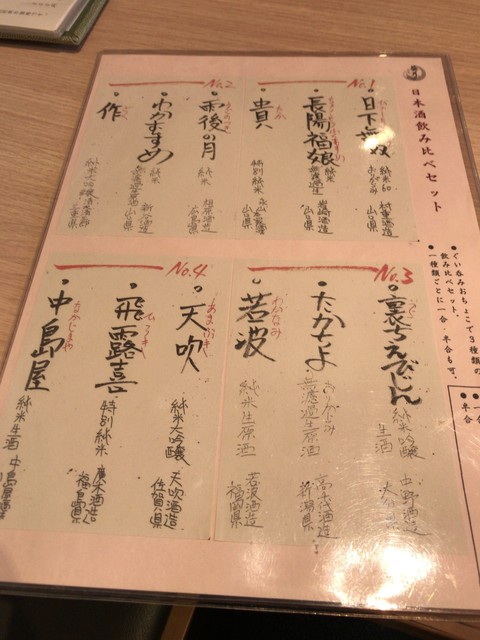 日本酒飲み比べセット
●ぐいのみおちょこで3種類の
飲み比べセット。
●一種類ごとに一合・半合も可。
・一合
・半合
No.1
日下無双
純米60
村重酒造
山口県
長陽福娘
純米
無濾過生
岩崎酒造
山口県
貴
たか
特別純米
永山本家酒造
山口県
No.2
雨後の月
純米
相原酒造
広島県
わかむすめ
純米
新谷酒造
山口県
作
純米大吟醸
清水清三郎
三重県
No.3
裏ちえびじん
純米吟醸
生酒
中野酒造
たかちよ
おりがらみ
無濾過生原酒
高千代酒造
新潟県
若波
わかなみ
純米生原酒
若波酒造
福岡県
No.4
天吹
あまぶき
純米大吟醸
天吹酒造
佐賀県
飛露喜
ひろき
特別純米
廣木酒造
福島県
中島屋
なかしまや
純米生酒
中島屋酒造